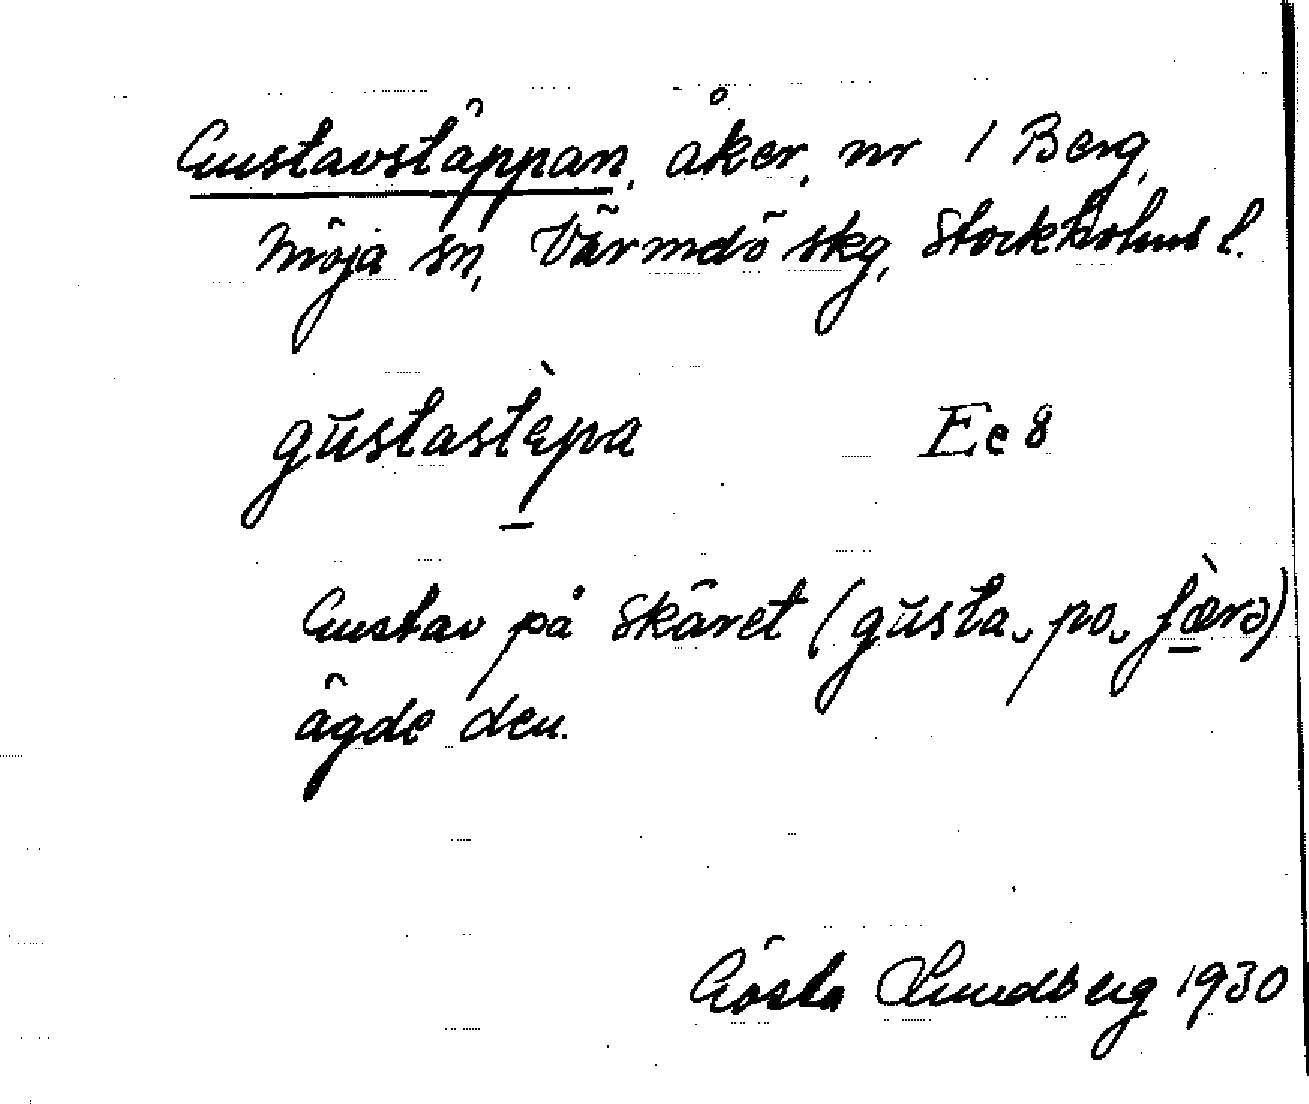 Gustavstäppan, åker, nr 1 Berg,
Möja sn, Värmdö skg, Stockholms l.
gŭstastὲpa Ee 8
Gustav på Skäret (gŭsta‿ po‿ ʃæ̀rə)
ägde den.
Gösta Lundberg 1930